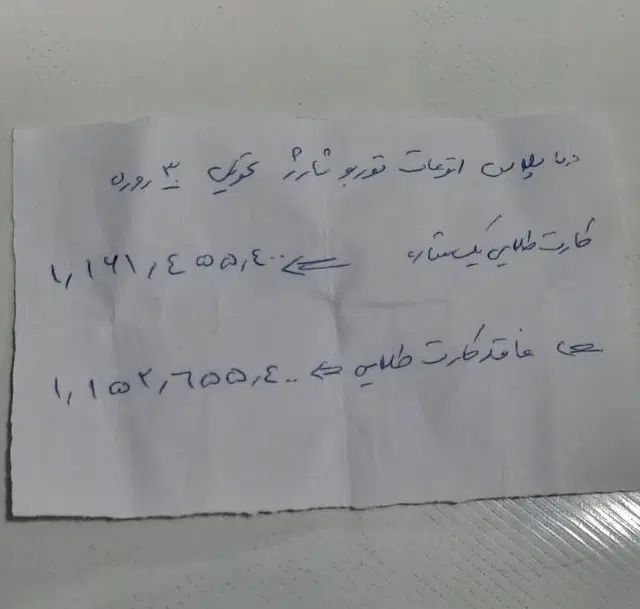 دنا پلاس اتومات توربو شارژ تحویل ۳۰ روزه
کارت طلایی یک ستاره ⇐ ۱,۱۶۱,۴۵۵,۴۰۰
فاقد کارت طلایی ⇐ ۱,۱۵۲,۶۵۵,۴۰۰